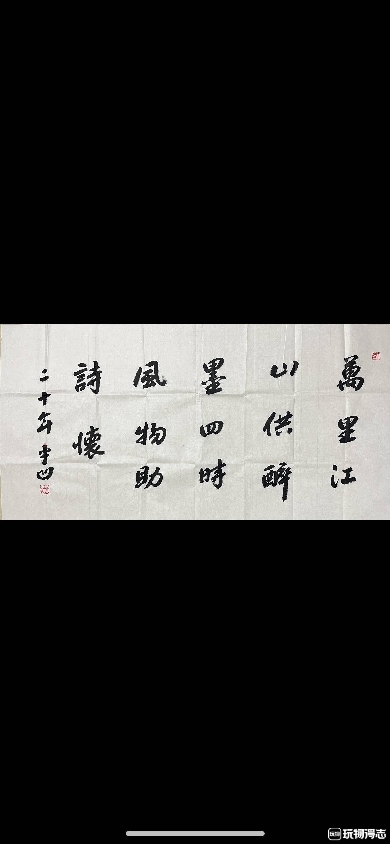 萬里江
山供醉
墨四時
風物助
詩懷
二十年 李四
玩物得志